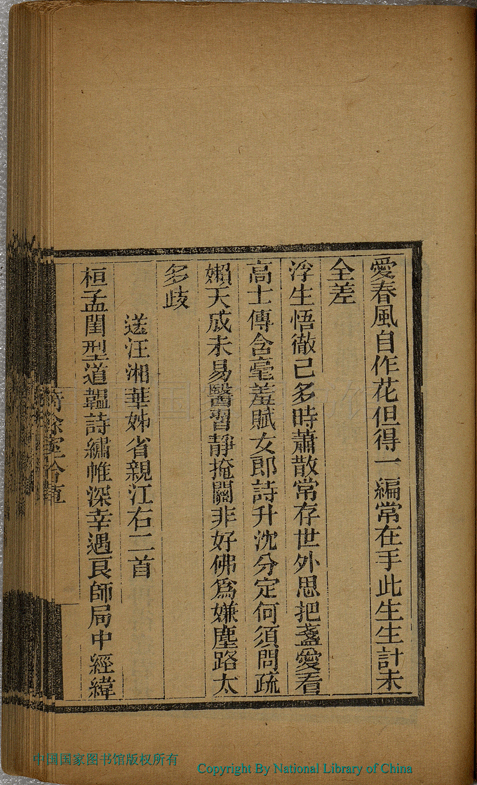 愛春風自作花但得一編常在手此生生計未
全差
浮生悟徹已多時蕭散常存世外思把盞愛看
高士傳含毫羞賦女郎詩升沈分定何須問疏
嬾天成未易醫習靜掩關非好佛爲嫌塵路太
多歧
送汪湘華姊省親江右二首
桓孟閨型道韞詩繡帷深幸遇良師局中經緯
中国国家图书馆版权所有
Copyright By National Library of China